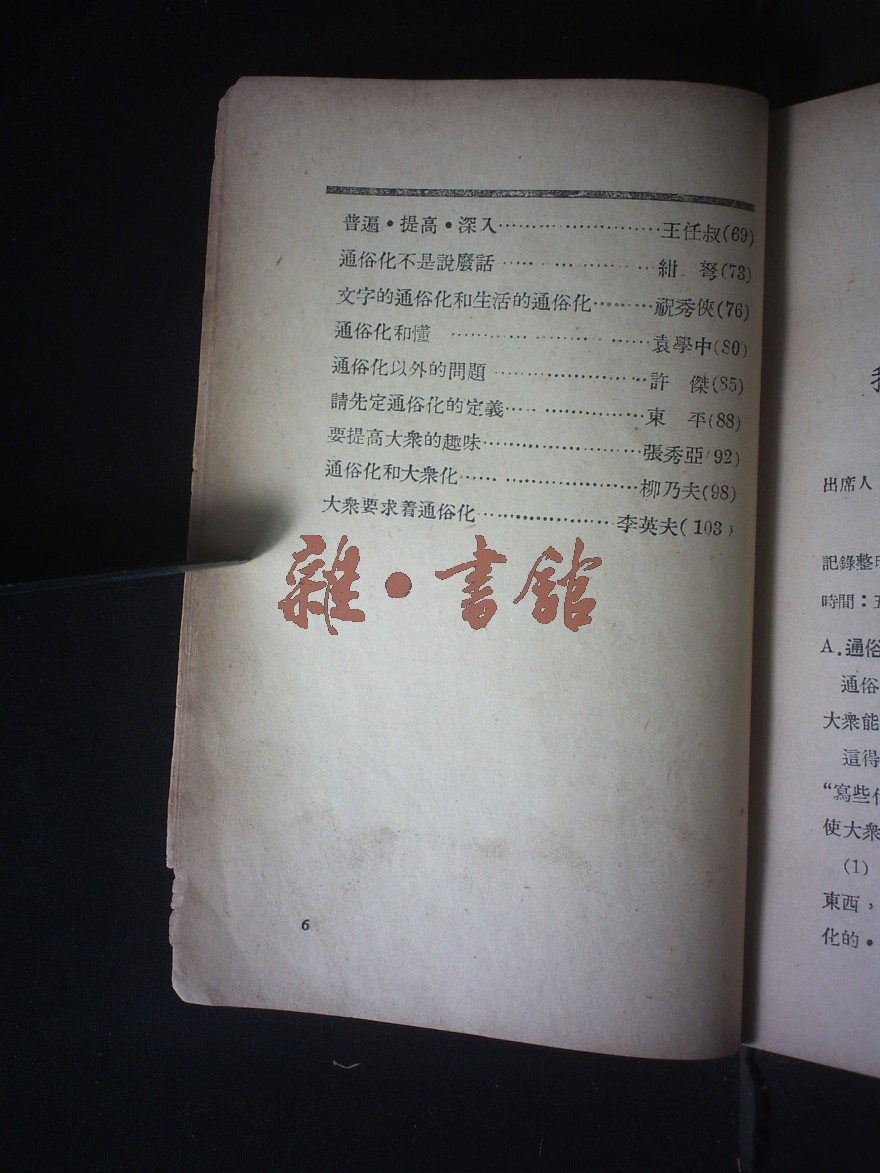 普遍•提高•深入……………………王任叔(69)
通俗化不是說麼話……………………紺　弩(73)
文字的通俗化和生活的通俗化………祝秀俠(76)
通俗化和懂……………………袁學中(80)
通俗化以外的問題……………………許　傑(85)
請先定通俗化的定義……………………東　平(88)
要提高大衆的趣味……………………張秀亞(92)
通俗化和大衆化……………………柳乃夫(98)
大衆要求着通俗化……………………李英夫(103)
雜•書館
6
出席人
記錄整
時間：五
A.通俗
通俗
大衆能
這得
“寫些什
使大衆
(1)
東西，
化的•